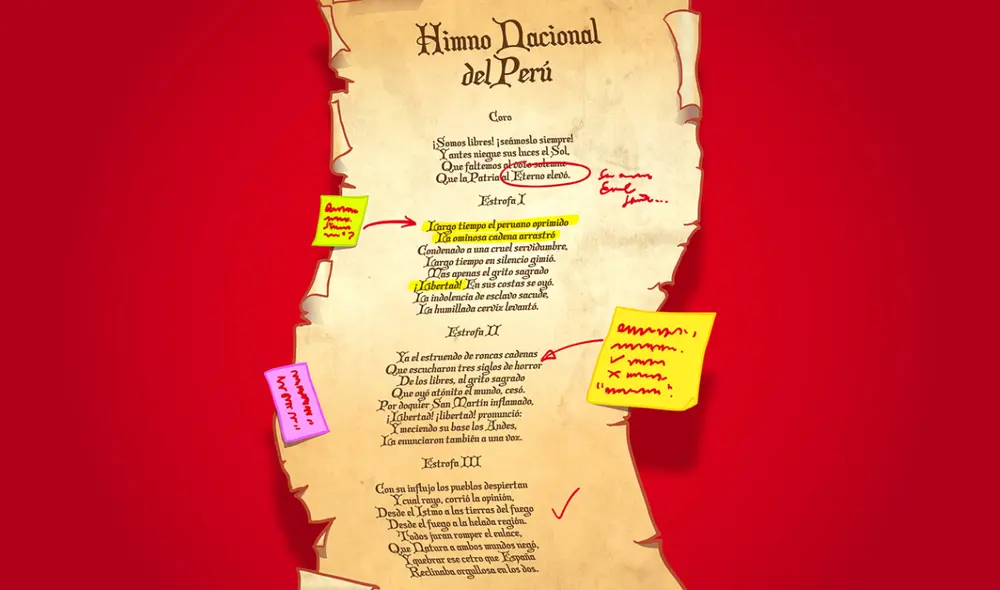 Himno Nacional
del Perú
Coro
¡Somos libres! ¡seámoslo siempre!
Y antes niegue sus luces el Sol,
Que faltemos al voto solemne
Que la Patria al Eterno elevó.
Estrofa I
Largo tiempo el peruano oprimido
La ominosa cadena arrastró
Condenado a una cruel servidumbre,
Largo tiempo en silencio gimió.
Mas apenas el grito sagrado
¡Libertad! En sus costas se oyó.
La indolencia de esclavo sacude,
La humillada cerviz levantó.
Estrofa II
Ya el estruendo de roncas cadenas
Que escucharon tres siglos de horror
De los libres, al grito sagrado
Que oyó atónito el mundo, cesó.
Por doquier San Martín inflamado,
¡Libertad! ¡libertad! pronunció:
Y meciendo su base los Andes,
La enunciaron también a una voz.
Estrofa III
Con su influjo los pueblos despiertan
Y cual rayo, corrió la opinión,
Desde el Istmo a las tierras del fuego
Desde el fuego a la helada región.
Todos juran romper el enlace,
Que Natura a ambos mundos negó,
Y quebrar ese cetro que España
Reclinaba orgullosa en los dos.